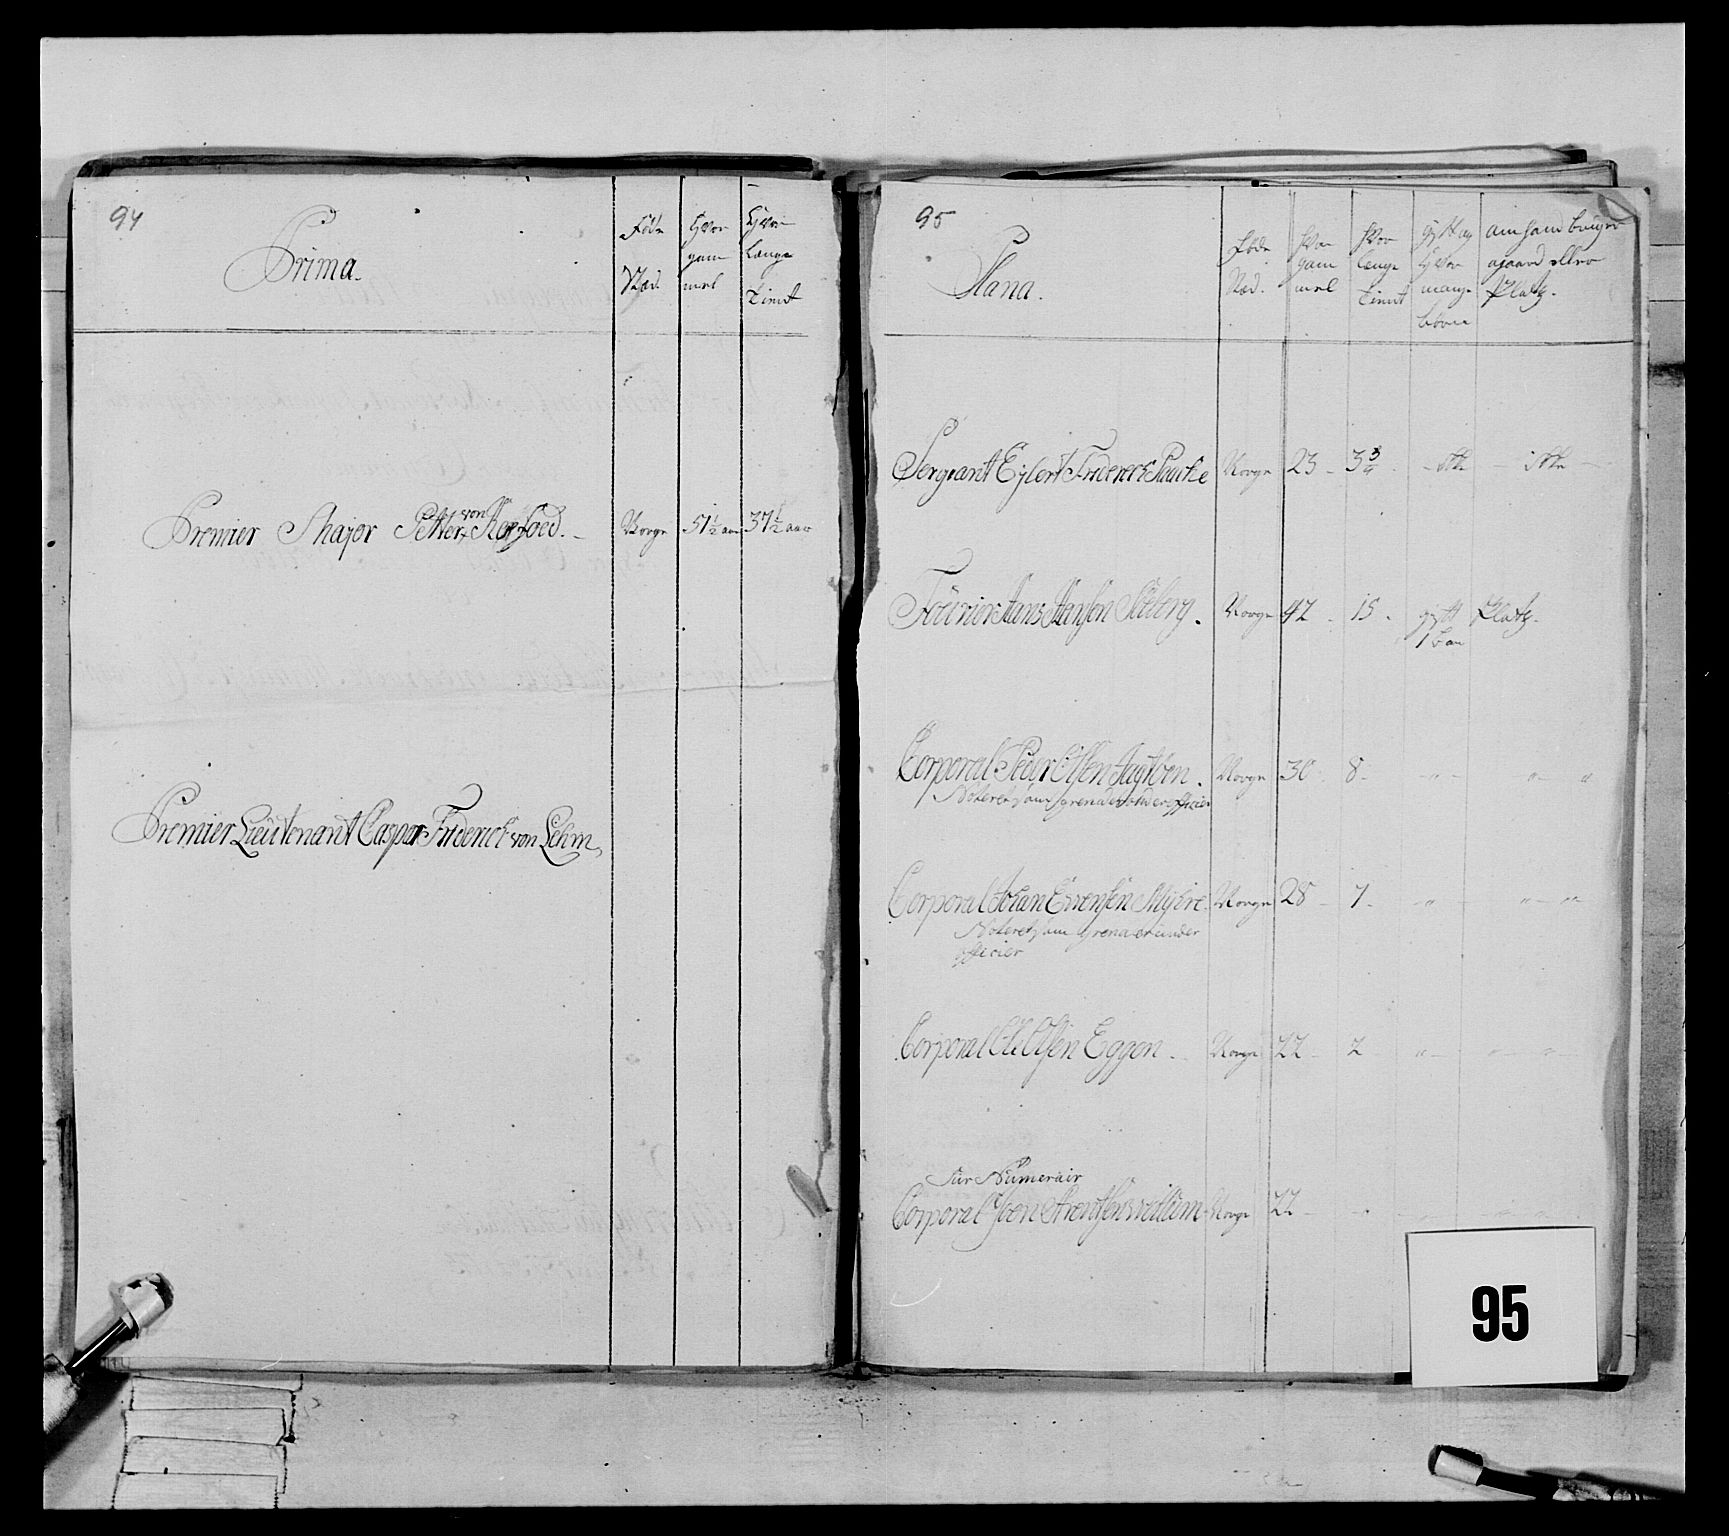 94
Prima.
Føde
Stæd.
Hvor
gam
mel
Hvor
længe
tient
Premier Major Petter von Krogfoed.
Norge
51 1/2 aar
37 1/2 aar
Premier Lieutenant Caspar Friderich von Lehm
95
Plana.
føde
Stæd.
Hvor
gam
mel
Hvor
længe
tient
gift og
Hvor
mange
børn
om hand bruger
gaard eller
Platz.
Sergeant Eylert Friderich Paucke Norge 23 - 3 3/4 - ikke - ikke -
Fourier Hans Hansen Norge 42 - 15 - gift Platz.
1 ban
Corporal Peder Olsen Norge 30 - 8 - " - " - "
Noteret som grenader under officier
Corporal Johan Norge 28 - 7 - " - " - "
Noteret som grenader under
officier
Corporal Ole Olsen Eggen - Norge 22 - 2 " - " - "
Sur Numerair
Corporal Joen Norge 22 -
95